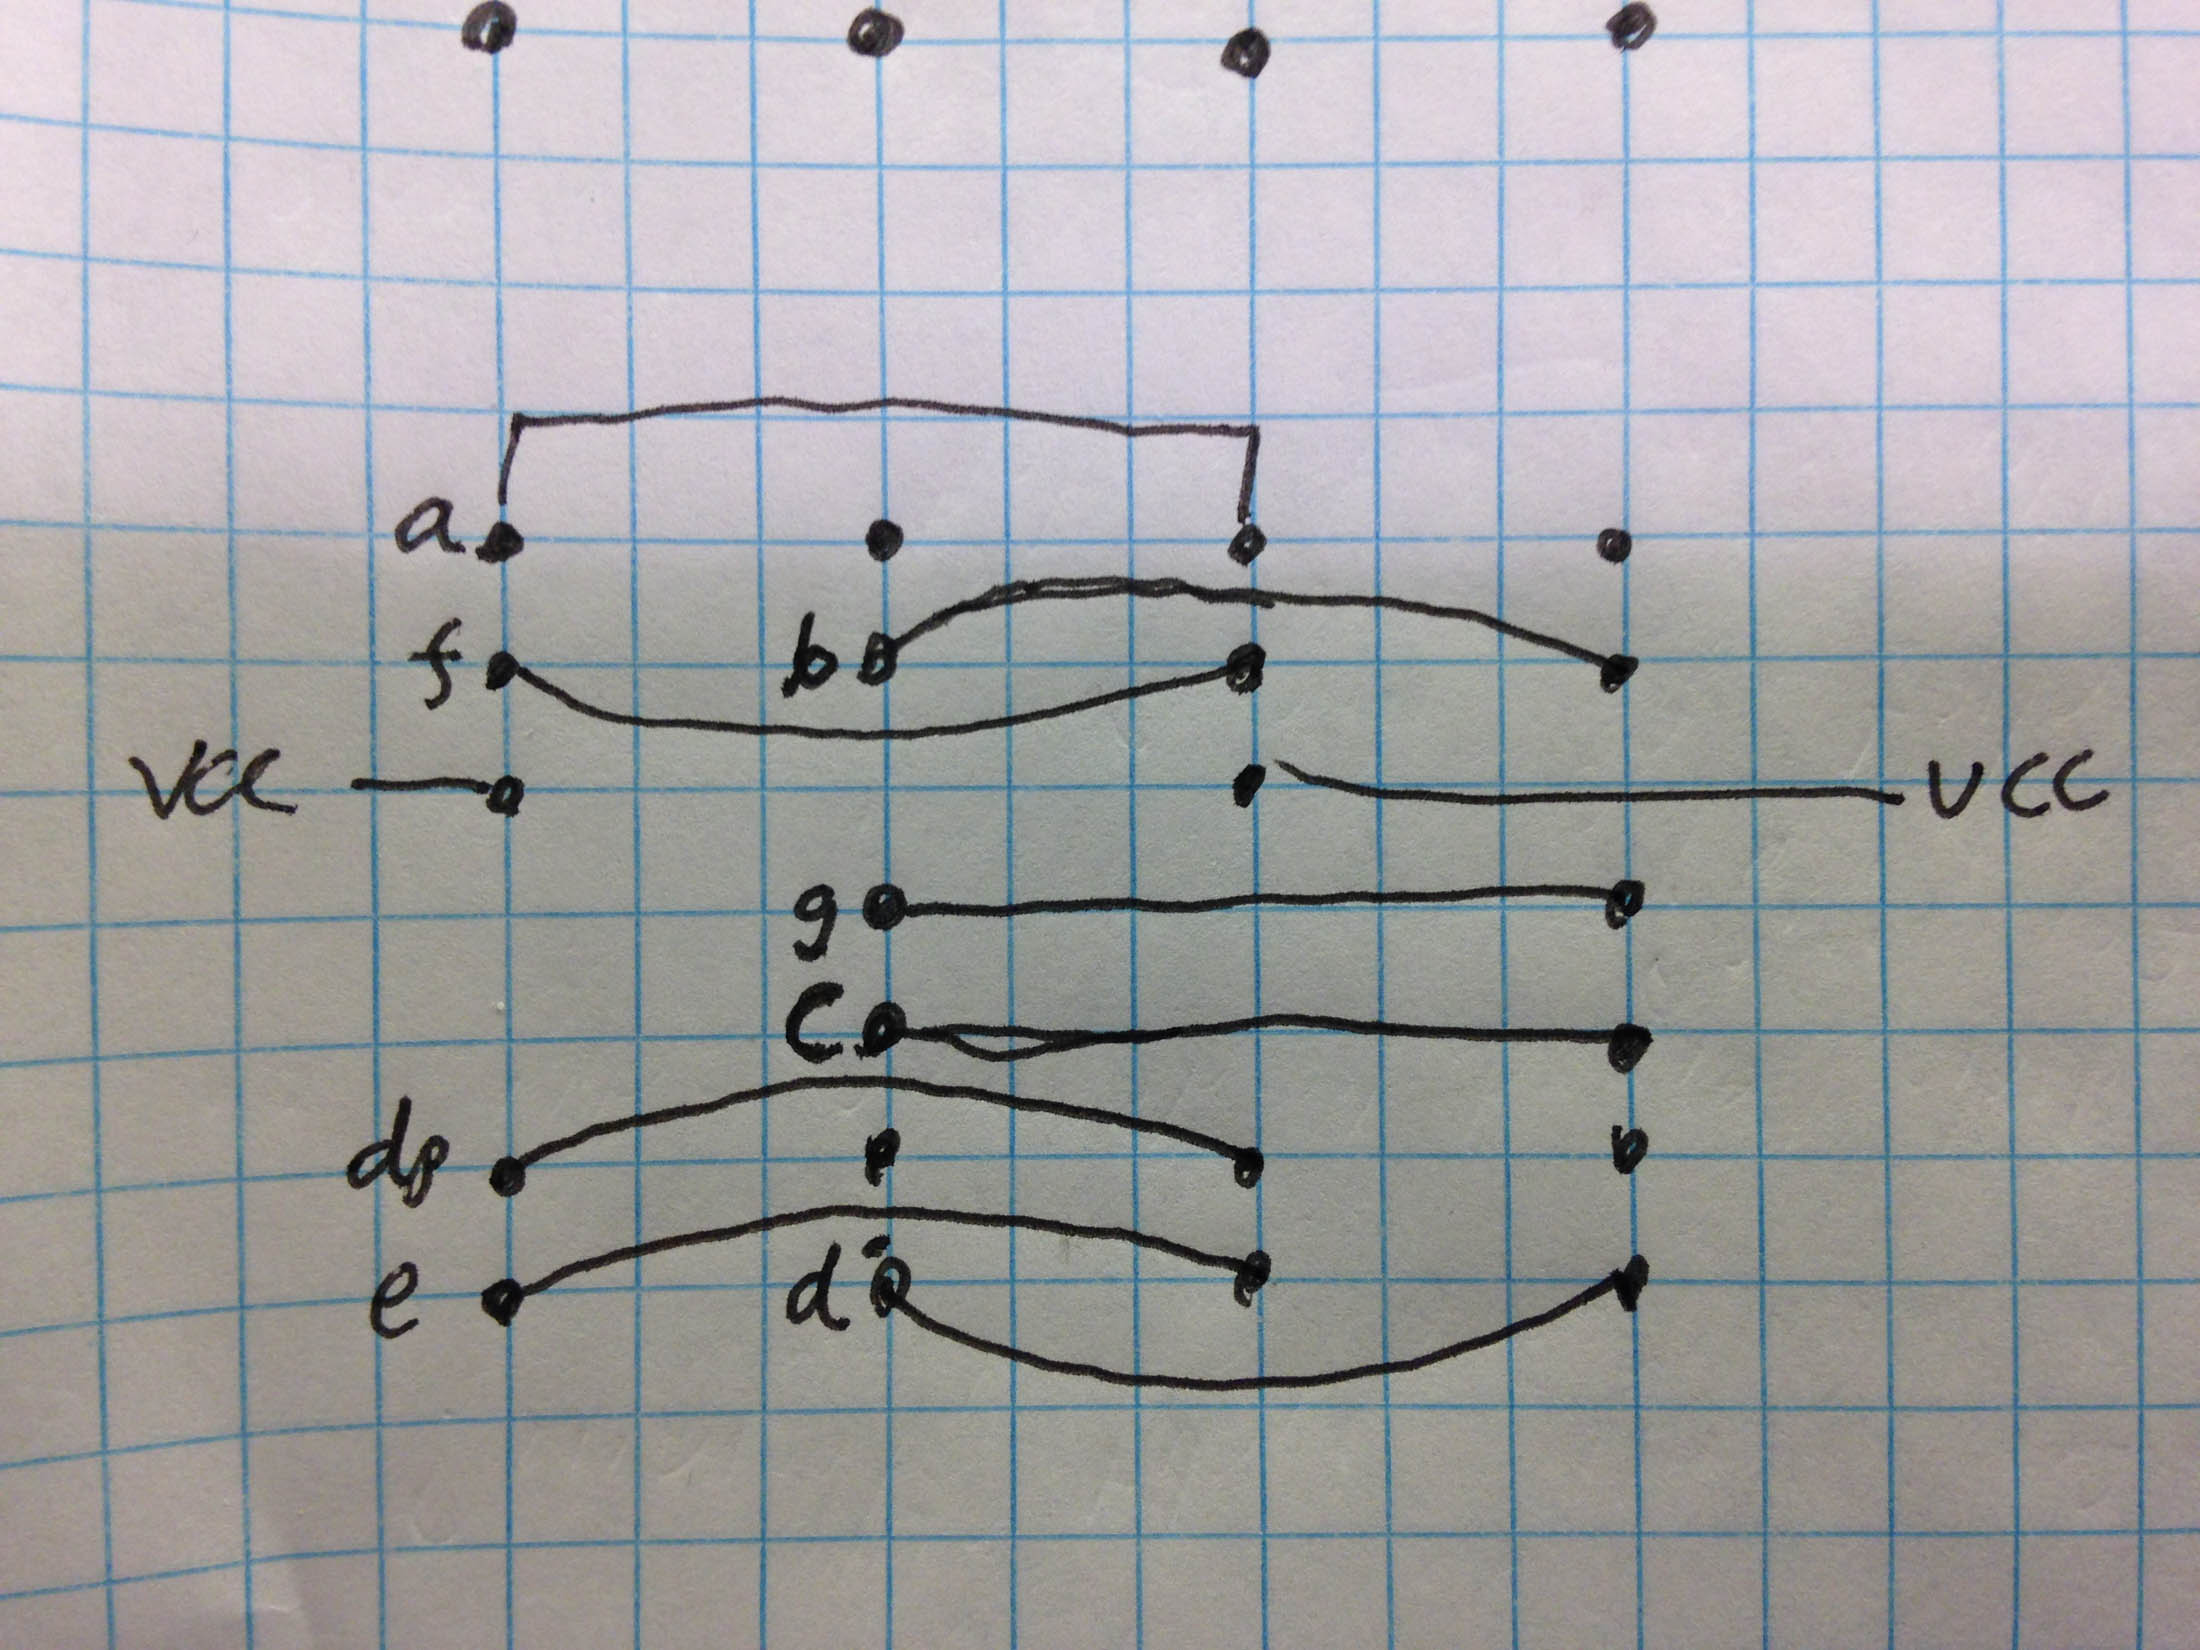 a
f b
VCC VCC
g
C
dp
e d